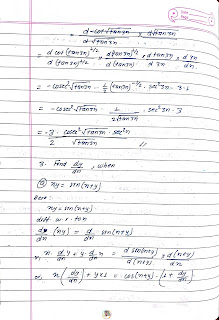 d cot √tan3x / d √tan3x × d √tan3x
= d cot (tan3x)^1/2 / d (tan3x)^1/2 × d (tan3x)^1/2 / d (tan3x) × d tan3x / d 3x × d 3x / dx
= - cosec² √tan3x · 1/2 (tan3x)^-1/2 · sec² 3x · 3·1
= - cosec² √tan3x · 1 / 2√tan3x · sec² 3x · 3
= -3/2 · cosec² √tan3x · sec² x / √tan3x //
3. Find dy/dx, when
@ xy = sin(x+y)
Here:
xy = sin(x+y)
diff w.r. to x
d/dx (xy) = d/dx sin(x+y)
or, x · d/dx y + y · d/dx x = d sin(x+y) / d(x+y) × d(x+y) / dx
or, x (dy/dx) + y×1 = cos(x+y) · (1 + dy/dx)